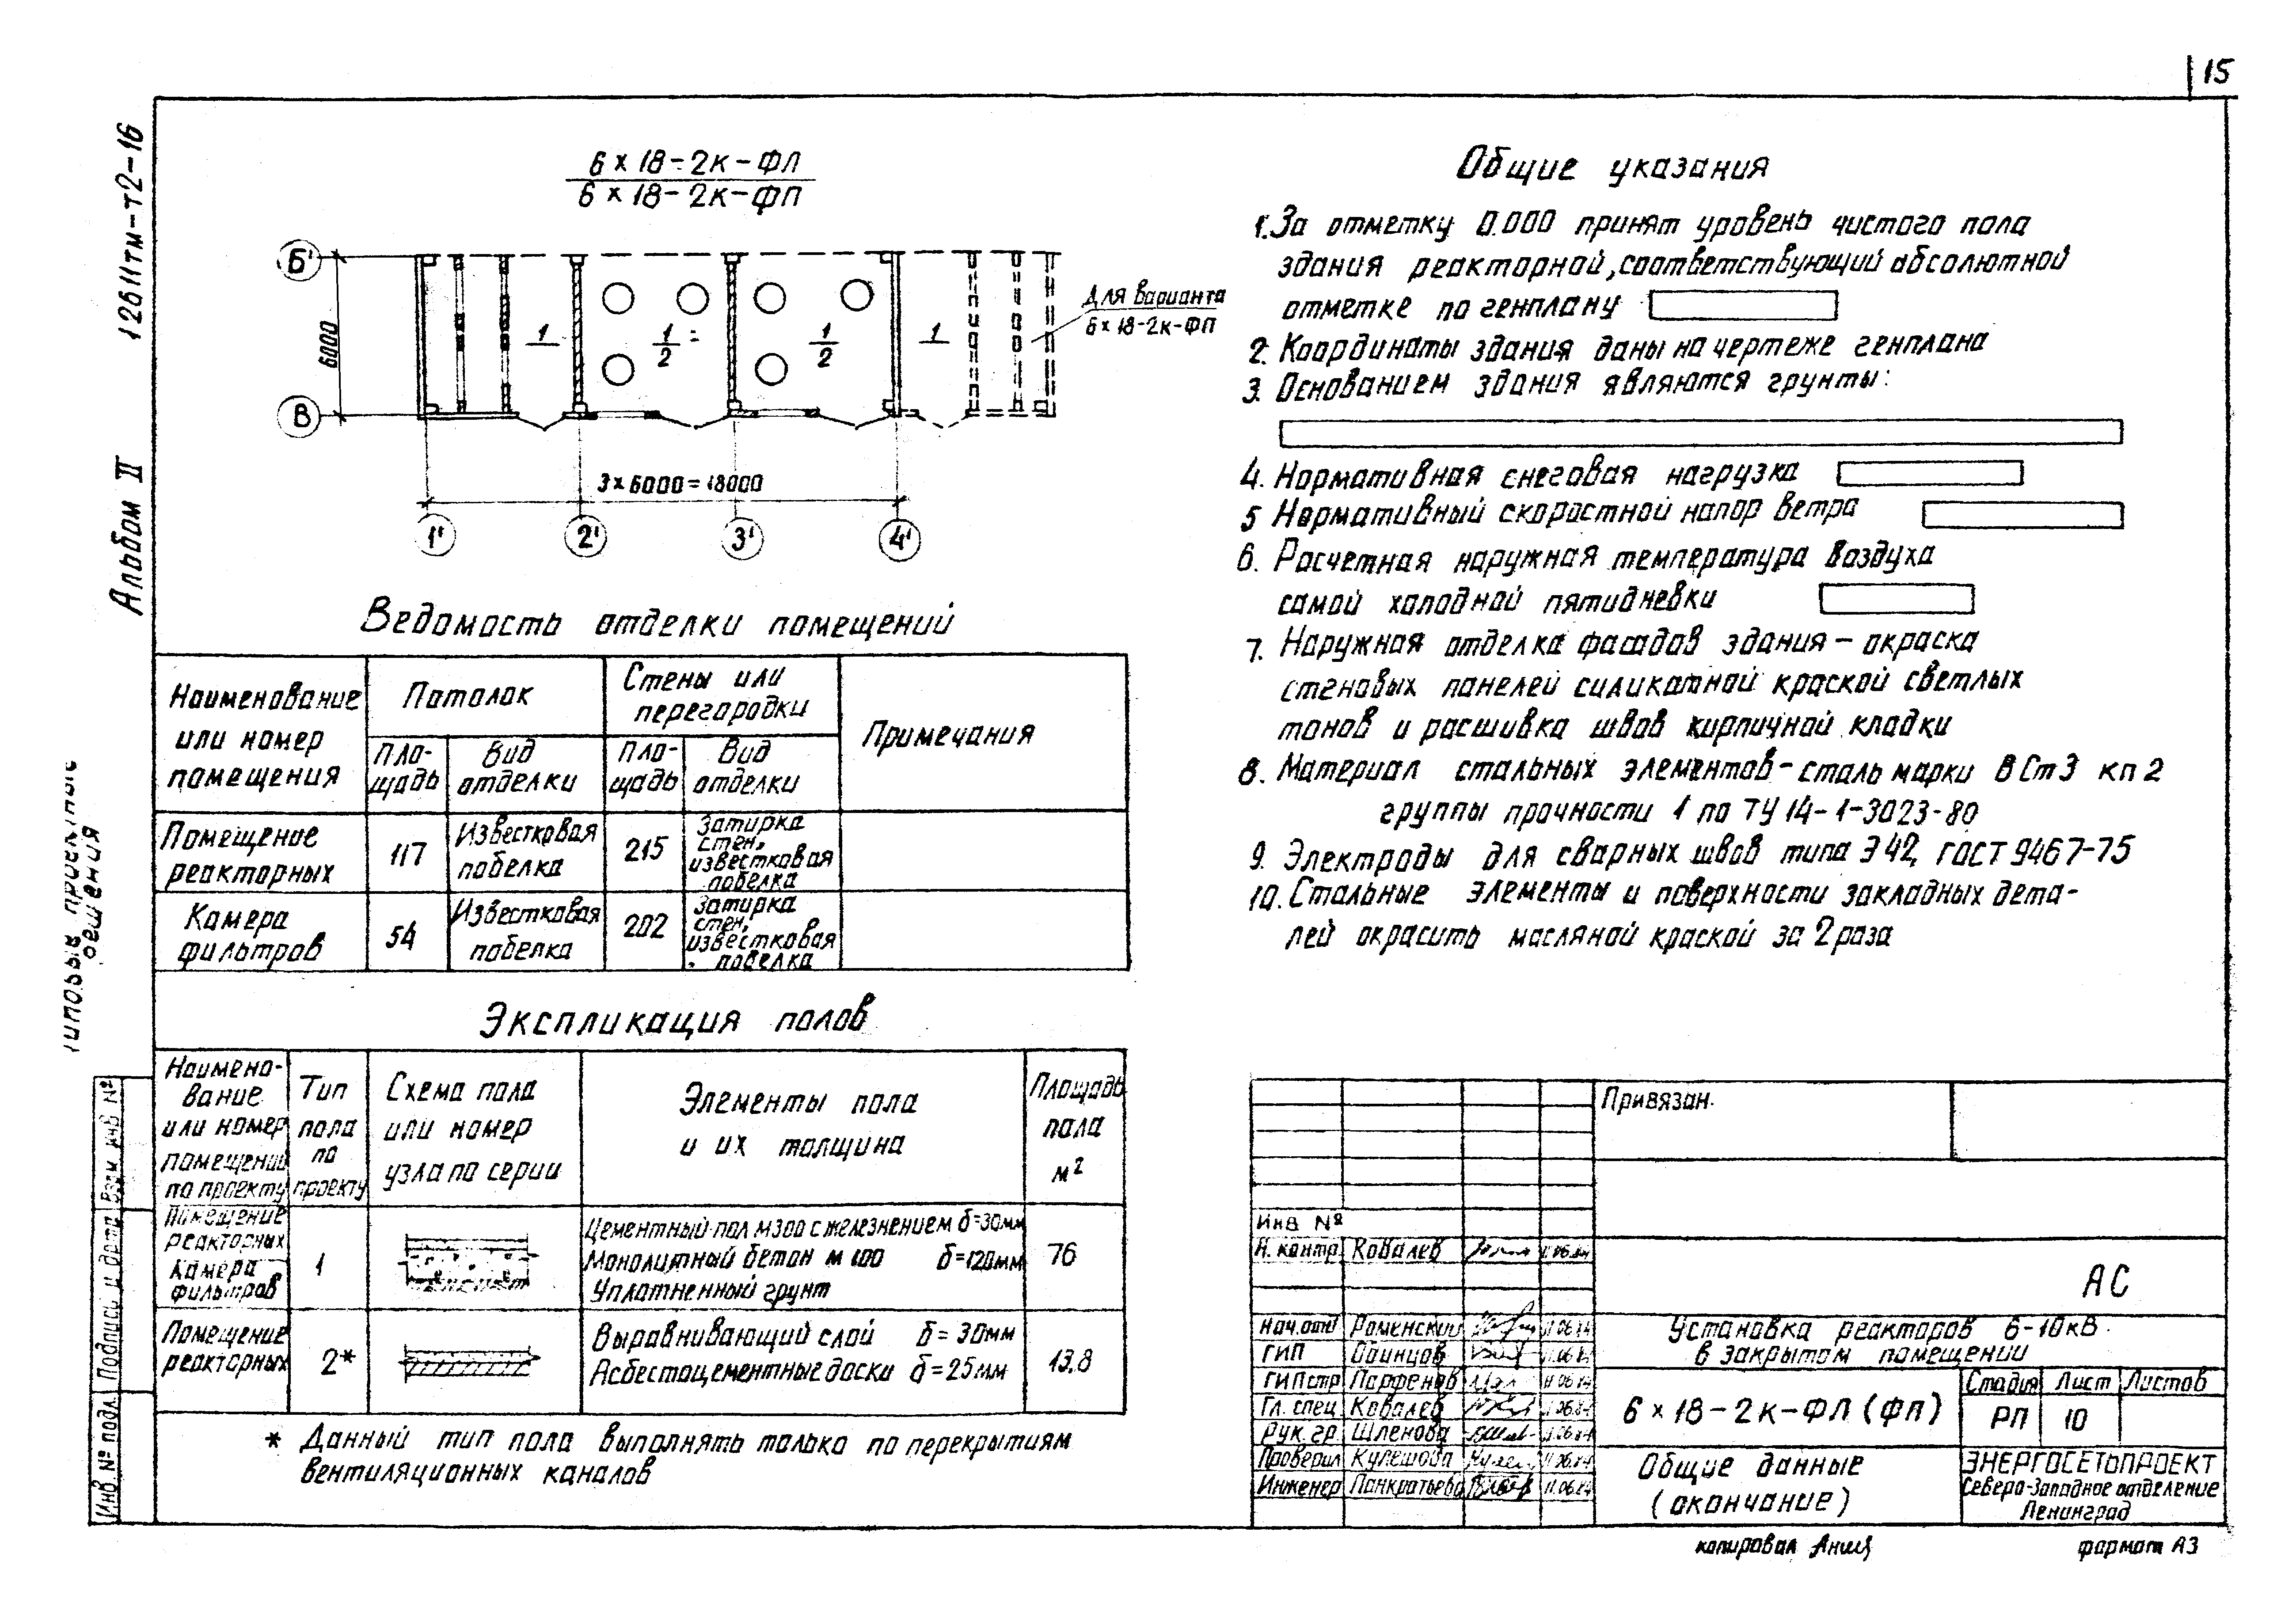 15
12611тм-т2-16
Альбом II
Типовые проектные
решения
6×18-2к-ФЛ
6×18-2к-ФП
Б'
В
6000
1
1
2
1
2
1
Для варианта
6×18-2к-ФП
3×6000=18000
1'
2'
3'
4'
Ведомость отделки помещений
Наименование
или номер
помещения
Потолок
Стены или
перегородки
Примечания
Пло-
щадь
Вид
отделки
Пло-
щадь
Вид
отделки
Помещение
реакторных
117
Известковая
побелка
215
Затирка
стен,
известковая
побелка
Камера
фильтров
54
Известковая
побелка
202
Затирка
стен,
известковая
побелка
Экспликация полов
Наимено-
вание
или номер
помещений
по проекту
Тип
пола
по
проекту
Схема пола
или номер
узла по серии
Элементы пола
и их толщина
Площадь
пола
м²
Помещение
реакторных
Камера
фильтров
1
Цементный пол М300 с железнением δ=30мм
Монолитный бетон М 100 δ=120мм
Уплотненный грунт
76
Помещение
реакторных
2*
Выравнивающий слой δ=30мм
Асбестоцементные доски δ=25мм
13.8
* Данный тип пола выполнять только по перекрытиям
вентиляционных каналов
Общие указания
1. За отметку 0.000 принят уровень чистого пола
здания реакторной, соответствующий абсолютной
отметке по генплану
2. Координаты здания даны на чертеже генплана
3. Основанием здания являются грунты:
4. Нормативная снеговая нагрузка
5 Нормативный скоростной напор ветра
6. Расчетная наружная температура воздуха
самой холодной пятидневки
7. Наружная отделка фасадов здания - окраска
стеновых панелей силикатной краской светлых
тонов и расшивка швов кирпичной кладки
8. Материал стальных элементов - сталь марки ВСт3 кп2
группы прочности 1 по ТУ 14-1-3023-80
9. Электроды для сварных швов типа Э42, ГОСТ 9467-75
10. Стальные элементы и поверхности закладных дета-
лей окрасить масляной краской за 2 раза
Привязан.
Инв №
Н. контр. Ковалев 11.06.84
АС
Нач.отд Роменский 11.06.84
ГИП Одинцов 11.06.84
ГИП стр Парфенов 11.06.84
Гл. спец Ковалев 11.06.84
Рук. гр. Шленова 11.06.84
Проверил Кулешова 11.06.84
Инженер Панкратьева 11.06.84
Установка реакторов 6-10кВ
в закрытом помещении
6×18-2к-ФЛ (ФП)
Стадия Лист Листов
РП 10
Общие данные
(окончание)
ЭНЕРГОСЕТЬПРОЕКТ
Северо-Западное отделение
Ленинград
Взам инв №
Подпись и дата
Инв № подл.
копировал
формат А3